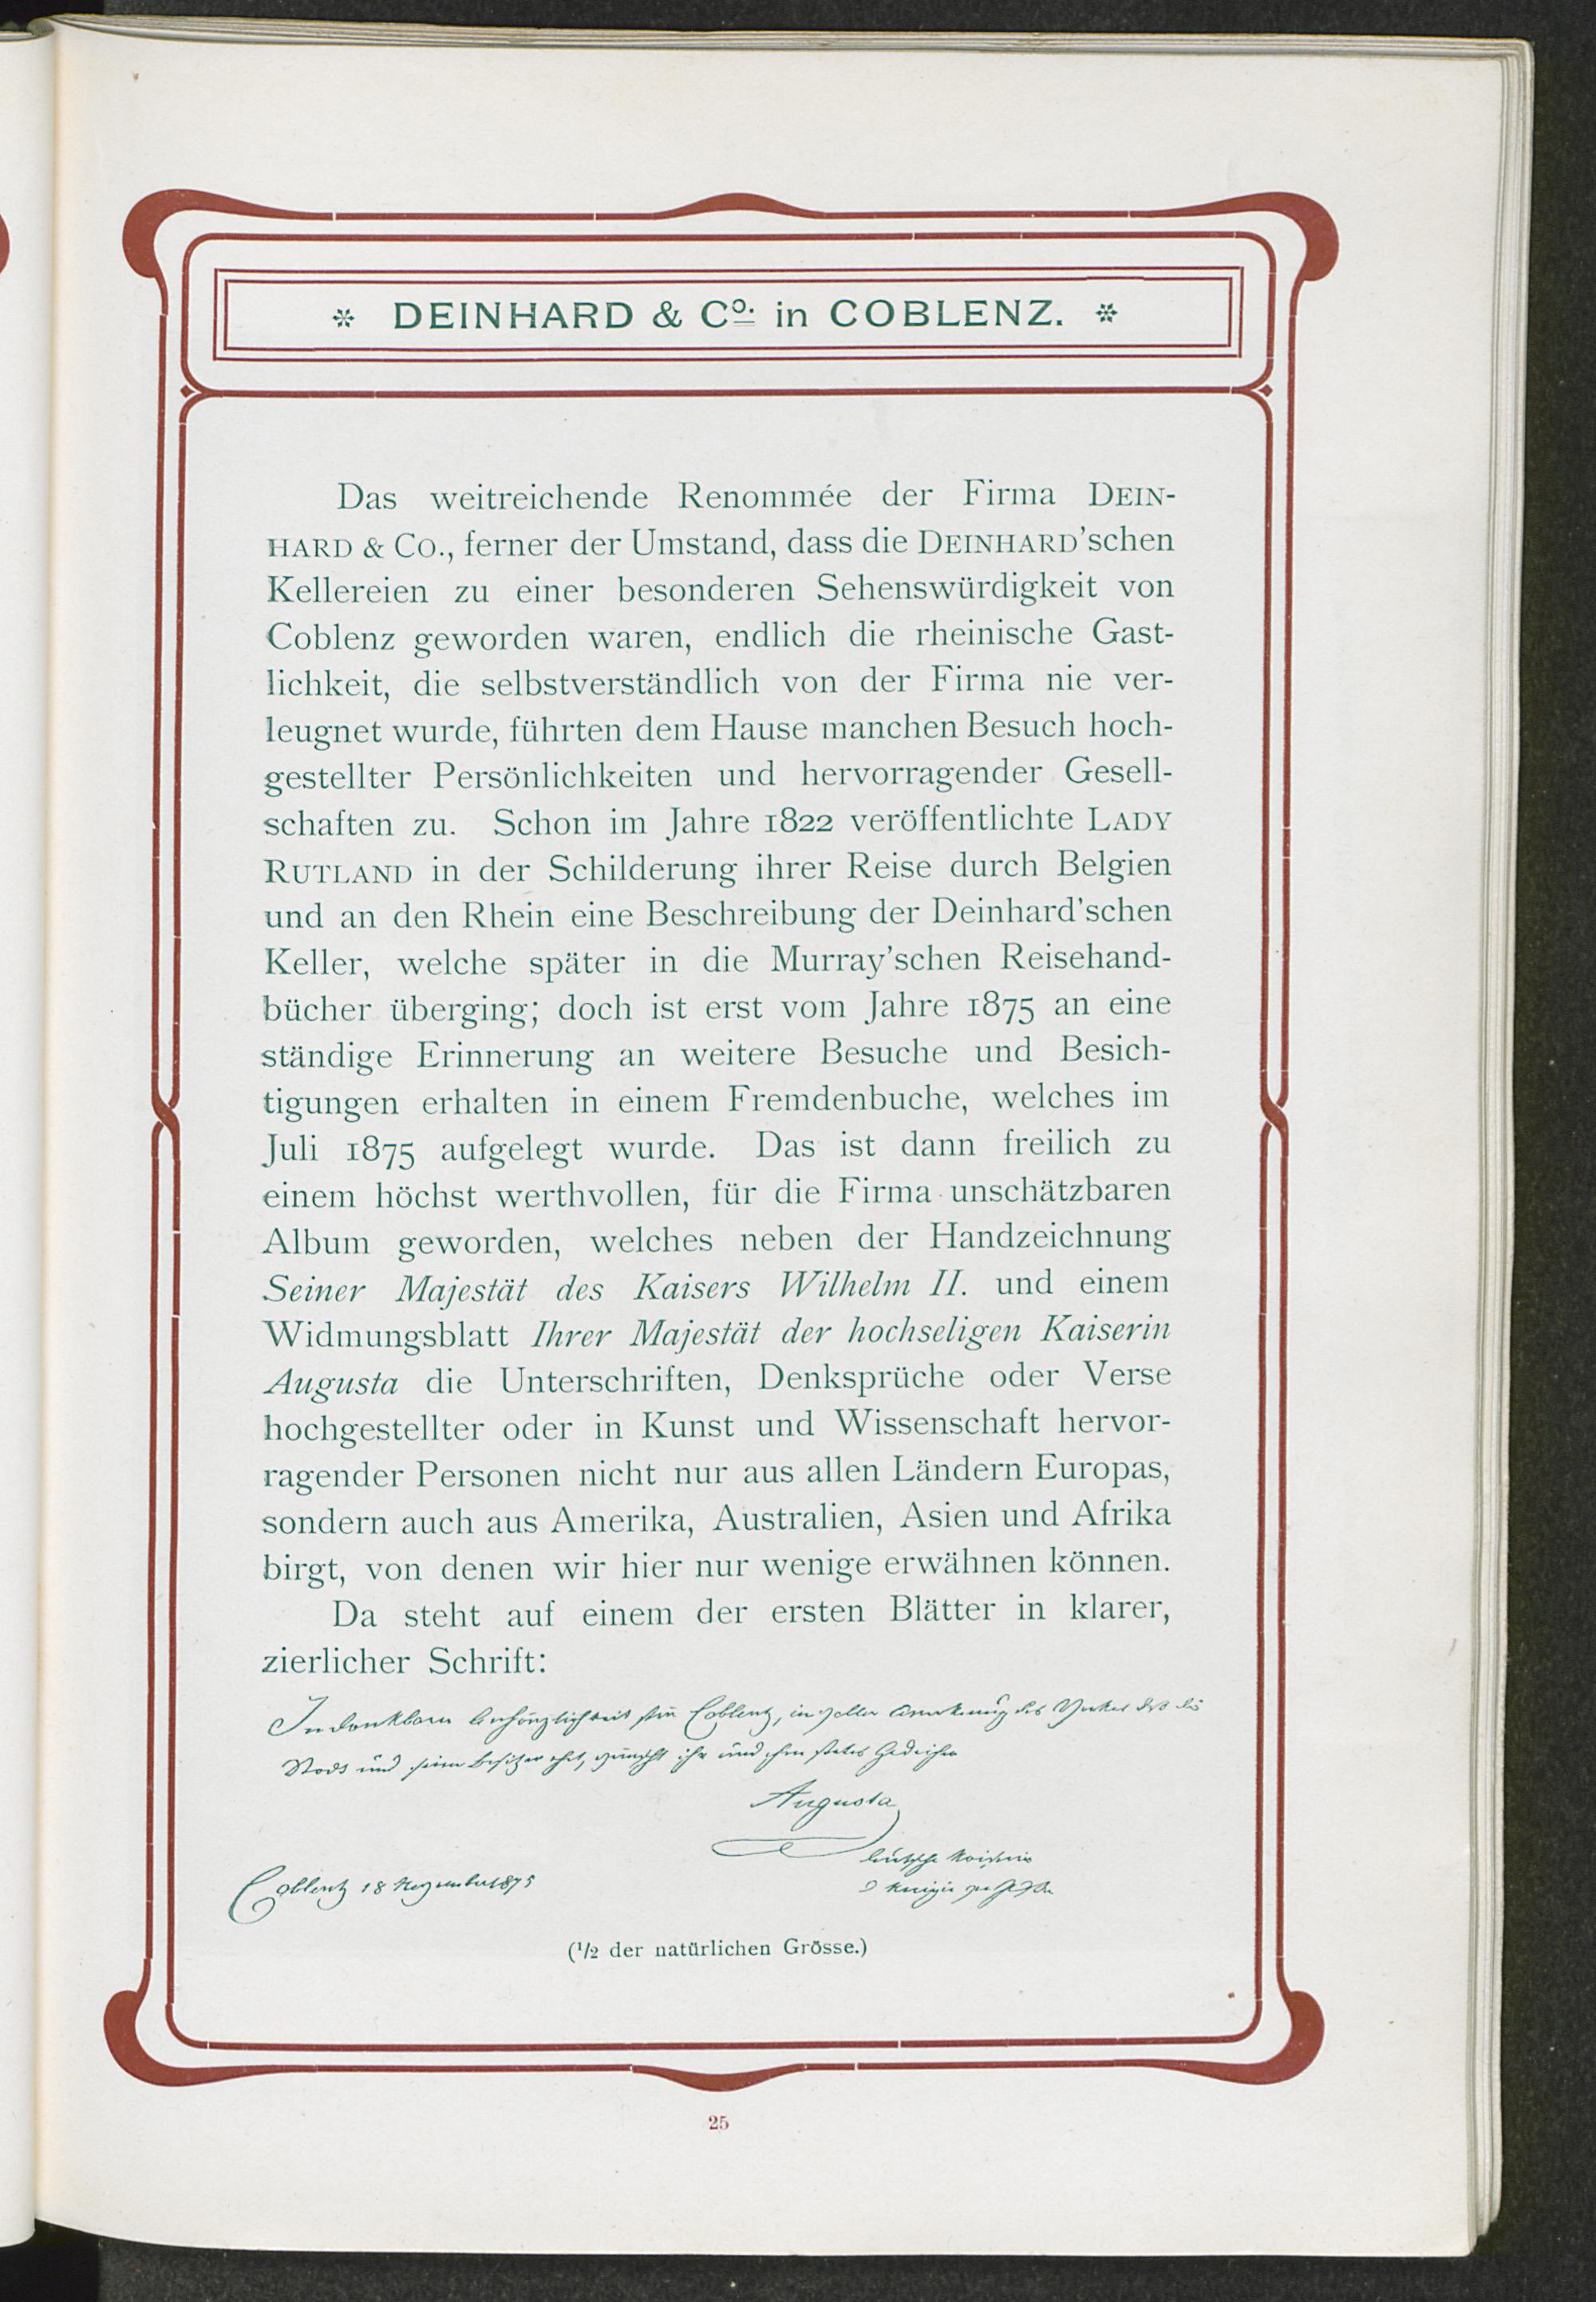 * DEINHARD & Co. in COBLENZ. *
Das weitreichende Renommée der Firma DEIN-
HARD & CO., ferner der Umstand, dass die DEINHARD'schen
Kellereien zu einer besonderen Sehenswürdigkeit von
Coblenz geworden waren, endlich die rheinische Gast-
lichkeit, die selbstverständlich von der Firma nie ver-
leugnet wurde, führten dem Hause manchen Besuch hoch-
gestellter Persönlichkeiten und hervorragender Gesell-
schaften zu. Schon im Jahre 1822 veröffentlichte LADY
RUTLAND in der Schilderung ihrer Reise durch Belgien
und an den Rhein eine Beschreibung der Deinhard'schen
Keller, welche später in die Murray'schen Reisehand-
bücher überging; doch ist erst vom Jahre 1875 an eine
ständige Erinnerung an weitere Besuche und Besich-
tigungen erhalten in einem Fremdenbuche, welches im
Juli 1875 aufgelegt wurde. Das ist dann freilich zu
einem höchst werthvollen, für die Firma unschätzbaren
Album geworden, welches neben der Handzeichnung
Seiner Majestät des Kaisers Wilhelm II. und einem
Widmungsblatt Ihrer Majestät der hochseligen Kaiserin
Augusta die Unterschriften, Denksprüche oder Verse
hochgestellter oder in Kunst und Wissenschaft hervor-
ragender Personen nicht nur aus allen Ländern Europas,
sondern auch aus Amerika, Australien, Asien und Afrika
birgt, von denen wir hier nur wenige erwähnen können.
Da steht auf einem der ersten Blätter in klarer,
zierlicher Schrift:
In dankbarer Anhänglichkeit für Coblenz, in voller Anerkennung des Werkes das die
Stadt und seine Besitzer ehrt, wünscht ihr und ihm stetes Gedeihen
Augusta
Deutsche Kaiserin
Coblenz 18 November 1875
(1/2 der natürlichen Grösse.)
25